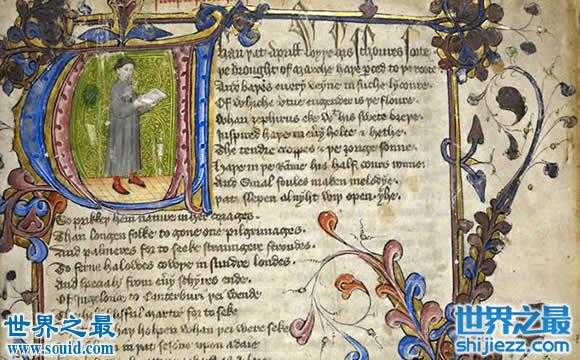 han þat aprill wyþe his schoures soote
þe drought of marche haþe perced to þe roote
And baþed euery veyne in suche licoure
Of whiche vertue engendred is þe floure
Whan zephirus eke wt his swete breþe
Inspired haþe in euery holte & hethe
The tendre croppes & þe ȝonge sonne
haþe in þe Rame his half cours ronne
And smal foules maken melodye
þat slepen al nyht wt open yhe
So prikkeþ hem nature in her corages
Than longen folke to gone on pilgrimages
And palmeres for to seeke straungere strondes
To ferne halowes cowþe in sundre londes
And specialy from euery schires ende
Of Ingelond to Canterburi þei wende
blisful martir for to seke
haþ holpen whan þei were seke
it in þat seson upon a daie
世界之最
www.souid.com
世界之最
shijiezz.com